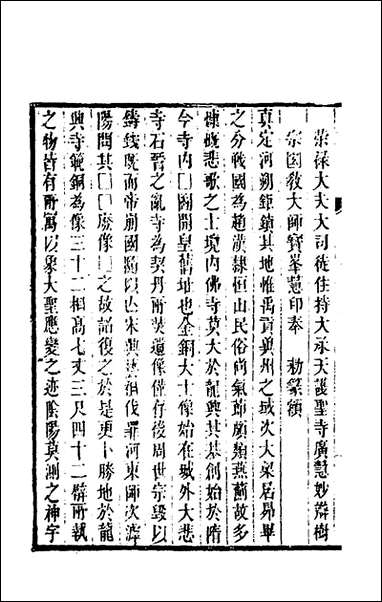 榮祿大夫大司徒住持大承天護聖寺廣慧妙辯樹
宗圓教大師寶峯慧印奉　勅篆額
真定河朔鉅鎮其地惟禹貢冀州之域次大梁居昴畢
之分戰國為趙漢隸恒山民俗尚氣節頗類燕薊故多
慷慨悲歌之士境內佛寺莫大於龍興其基創始於隋
今寺內□園開皇舊址也金銅大士像始在城外大悲
寺石晉之亂寺為契丹所焚道像僅存後周世宗毀以
鑄錢旣而帝崩國隨以亡宋興藝祖伐罪河東師次滹
陽問其□□廢像□之故詔復之於是更卜勝地於龍
興寺範銅為像三十二相高七丈三尺四十二臂所執
之物皆有所寓以象大聖應變之迹陰陽莫測之神宇